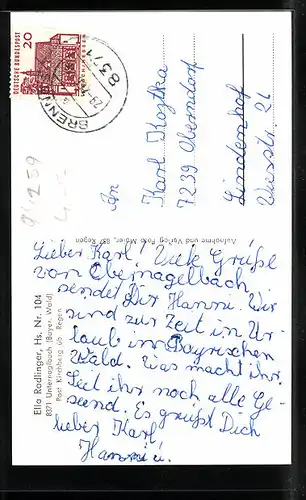 20
DEUTSCHE BUNDESPOST
8371
An
Karl Koztka
7239 Oberndorf
Lindenhof
Weserstr. 21
Aufnahme und Verlag Foto Maier, 837 Regen
Lieber Karl! Viele Grüße
von Obernagelbach
sendet Dir Hanni. Wir
sind zur Zeit in Ur-
laub im Bayrischen
Wald. Was macht ihr.
Seit ihr noch alle Ge-
sund. Es grüßt Dich
lieber Karl
Hanni!
Ella Radlinger, Hs. Nr. 104
8371 Unternaglbach (Bayer. Wald)
Post Kirchberg üb. Regen